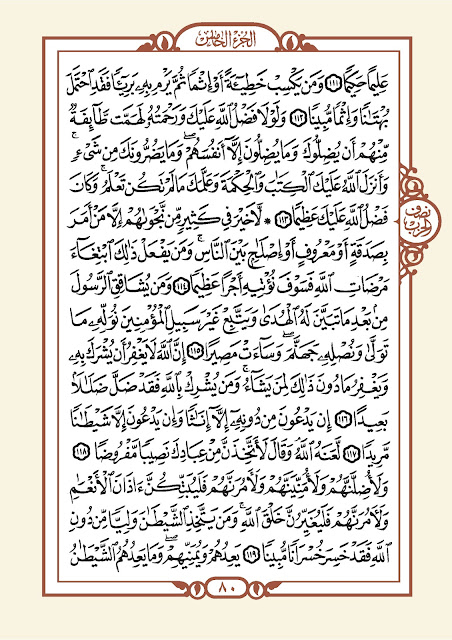 الجزء الخامس
عَلِيمًا حَكِيمًا ١١١ وَمَن يَكْسِبْ خَطِيٓـَٔةً أَوْ إِثْمًا ثُمَّ يَرْمِ بِهِۦ بَرِيٓـًٔا فَقَدِ ٱحْتَمَلَ
بُهْتَٰنًا وَإِثْمًا مُّبِينًا ١١٢ وَلَوْلَا فَضْلُ ٱللَّهِ عَلَيْكَ وَرَحْمَتُهُۥ لَهَمَّت طَّآئِفَةٌ
مِّنْهُمْ أَن يُضِلُّوكَ وَمَا يُضِلُّونَ إِلَّآ أَنفُسَهُمْ ۖ وَمَا يَضُرُّونَكَ مِن شَىْءٍ ۚ
وَأَنزَلَ ٱللَّهُ عَلَيْكَ ٱلْكِتَٰبَ وَٱلْحِكْمَةَ وَعَلَّمَكَ مَا لَمْ تَكُن تَعْلَمُ ۚ وَكَانَ
فَضْلُ ٱللَّهِ عَلَيْكَ عَظِيمًا ١١٣ * لَّا خَيْرَ فِى كَثِيرٍ مِّن نَّجْوَىٰهُمْ إِلَّا مَنْ أَمَرَ
نصف الحزب
بِصَدَقَةٍ أَوْ مَعْرُوفٍ أَوْ إِصْلَٰحٍۭ بَيْنَ ٱلنَّاسِ ۚ وَمَن يَفْعَلْ ذَٰلِكَ ٱبْتِغَآءَ
مَرْضَاتِ ٱللَّهِ فَسَوْفَ نُؤْتِيهِ أَجْرًا عَظِيمًا ١١٤ وَمَن يُشَاقِقِ ٱلرَّسُولَ
مِنۢ بَعْدِ مَا تَبَيَّنَ لَهُ ٱلْهُدَىٰ وَيَتَّبِعْ غَيْرَ سَبِيلِ ٱلْمُؤْمِنِينَ نُوَلِّهِۦ مَا
تَوَلَّىٰ وَنُصْلِهِۦ جَهَنَّمَ ۖ وَسَآءَتْ مَصِيرًا ١١٥ إِنَّ ٱللَّهَ لَا يَغْفِرُ أَن يُشْرَكَ بِهِۦ
وَيَغْفِرُ مَا دُونَ ذَٰلِكَ لِمَن يَشَآءُ ۚ وَمَن يُشْرِكْ بِٱللَّهِ فَقَدْ ضَلَّ ضَلَٰلًۢا
بَعِيدًا ١١٦ إِن يَدْعُونَ مِن دُونِهِۦٓ إِلَّآ إِنَٰثًا وَإِن يَدْعُونَ إِلَّا شَيْطَٰنًا
مَّرِيدًا ١١٧ لَّعَنَهُ ٱللَّهُ ۘ وَقَالَ لَأَتَّخِذَنَّ مِنْ عِبَادِكَ نَصِيبًا مَّفْرُوضًا ١١٨
وَلَأُضِلَّنَّهُمْ وَلَأُمَنِّيَنَّهُمْ وَلَـَٔامُرَنَّهُمْ فَلَيُبَتِّكُنَّ ءَاذَانَ ٱلْأَنْعَٰمِ
وَلَـَٔامُرَنَّهُمْ فَلَيُغَيِّرُنَّ خَلْقَ ٱللَّهِ ۚ وَمَن يَتَّخِذِ ٱلشَّيْطَٰنَ وَلِيًّا مِّن دُونِ
ٱللَّهِ فَقَدْ خَسِرَ خُسْرَانًا مُّبِينًا ١١٩ يَعِدُهُمْ وَيُمَنِّيهِمْ ۖ وَمَا يَعِدُهُمُ ٱلشَّيْطَٰنُ
٨٠